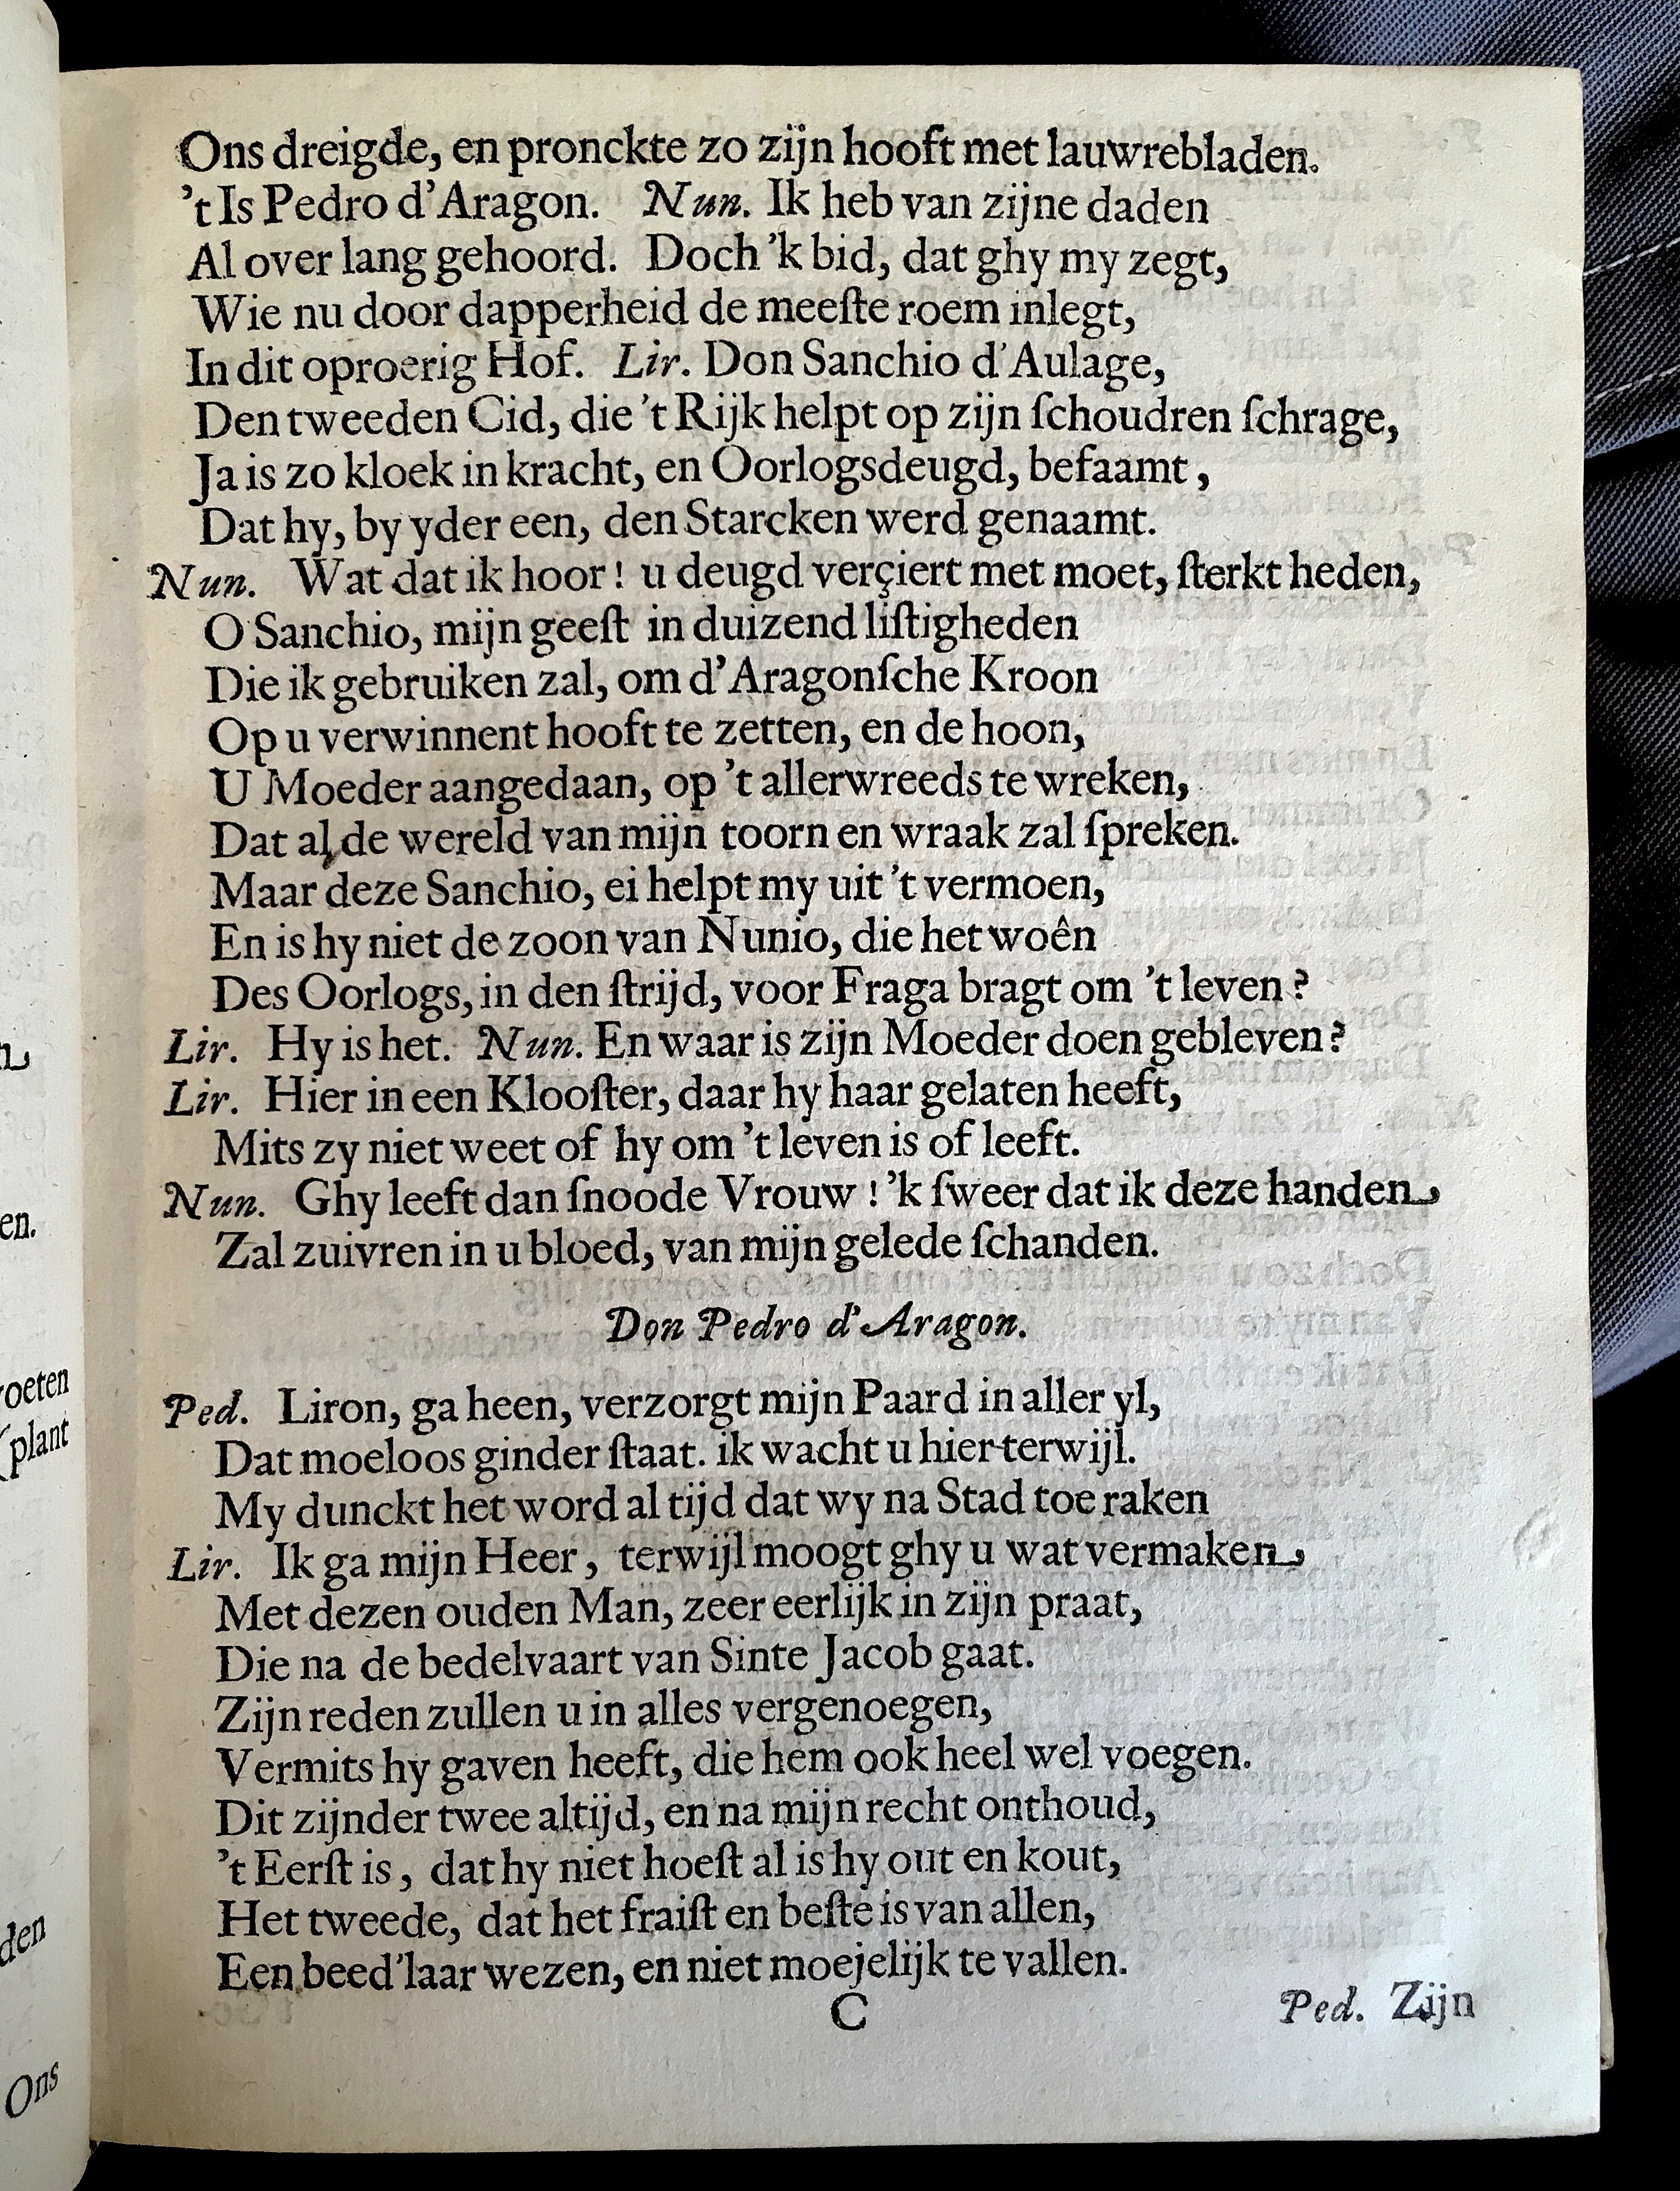 Ons dreigde, en pronckte zo zijn hooft met lauwrebladen.
’t Is Pedro d’Aragon. Nun. Ik heb van zijne daden
Al over lang gehoord. Doch ’k bid, dat ghy my zegt,
Wie nu door dapperheid de meeſte roem inlegt,
In dit oproerig Hof. Lir. Don Sanchio d’Aulage,
Den tweeden Cid, die ’t Rijk helpt op zijn ſchoudren ſchrage,
Ja is zo kloek in kracht, en Oorlogsdeugd, befaamt,
Dat hy, by yder een, den Starcken werd genaamt.
Nun. Wat dat ik hoor! u deugd verçiert met moet, ſterkt heden,
O Sanchio, mijn geeſt in duizend liſtigheden
Die ik gebruiken zal, om d’Aragonſche Kroon
Op u verwinnent hooft te zetten, en de hoon,
U Moeder aangedaan, op ’t allerwreeds te wreken,
Dat al de wereld van mijn toorn en wraak zal ſpreken.
Maar deze Sanchio, ei helpt my uit ’t vermoen,
En is hy niet de zoon van Nunio, die het woên
Des Oorlogs, in den ſtrijd, voor Fraga bragt om ’t leven?
Lir. Hy is het. Nun. En waar is zijn Moeder doen gebleven?
Lir. Hier in een Klooſter, daar hy haar gelaten heeft,
Mits zy niet weet of hy om ’t leven is of leeft.
Nun. Ghy leeft dan ſnoode Vrouw! ’k ſweer dat ik deze handen
Zal zuivren in u bloed, van mijn gelede ſchanden.
Don Pedro d’Aragon.
Ped. Liron, ga heen, verzorgt mijn Paard in aller yl,
Dat moeloos ginder ſtaat. ik wacht u hier terwijl.
My dunckt het word al tijd dat wy na Stad toe raken
Lir. Ik ga mijn Heer, terwijl moogt ghy u wat vermaken
Met dezen ouden Man, zeer eerlijk in zijn praat,
Die na de bedelvaart van Sinte Jacob gaat.
Zijn reden zullen u in alles vergenoegen,
Vermits hy gaven heeft, die hem ook heel wel voegen.
Dit zijnder twee altijd, en na mijn recht onthoud,
’t Eerſt is, dat hy niet hoeſt al is hy out en kout,
Het tweede, dat het fraiſt en beſte is van allen,
Een beed’laar wezen, en niet moejelijk te vallen.
C
Ped. Zijn
en.
oeten
(plant
den
Ons